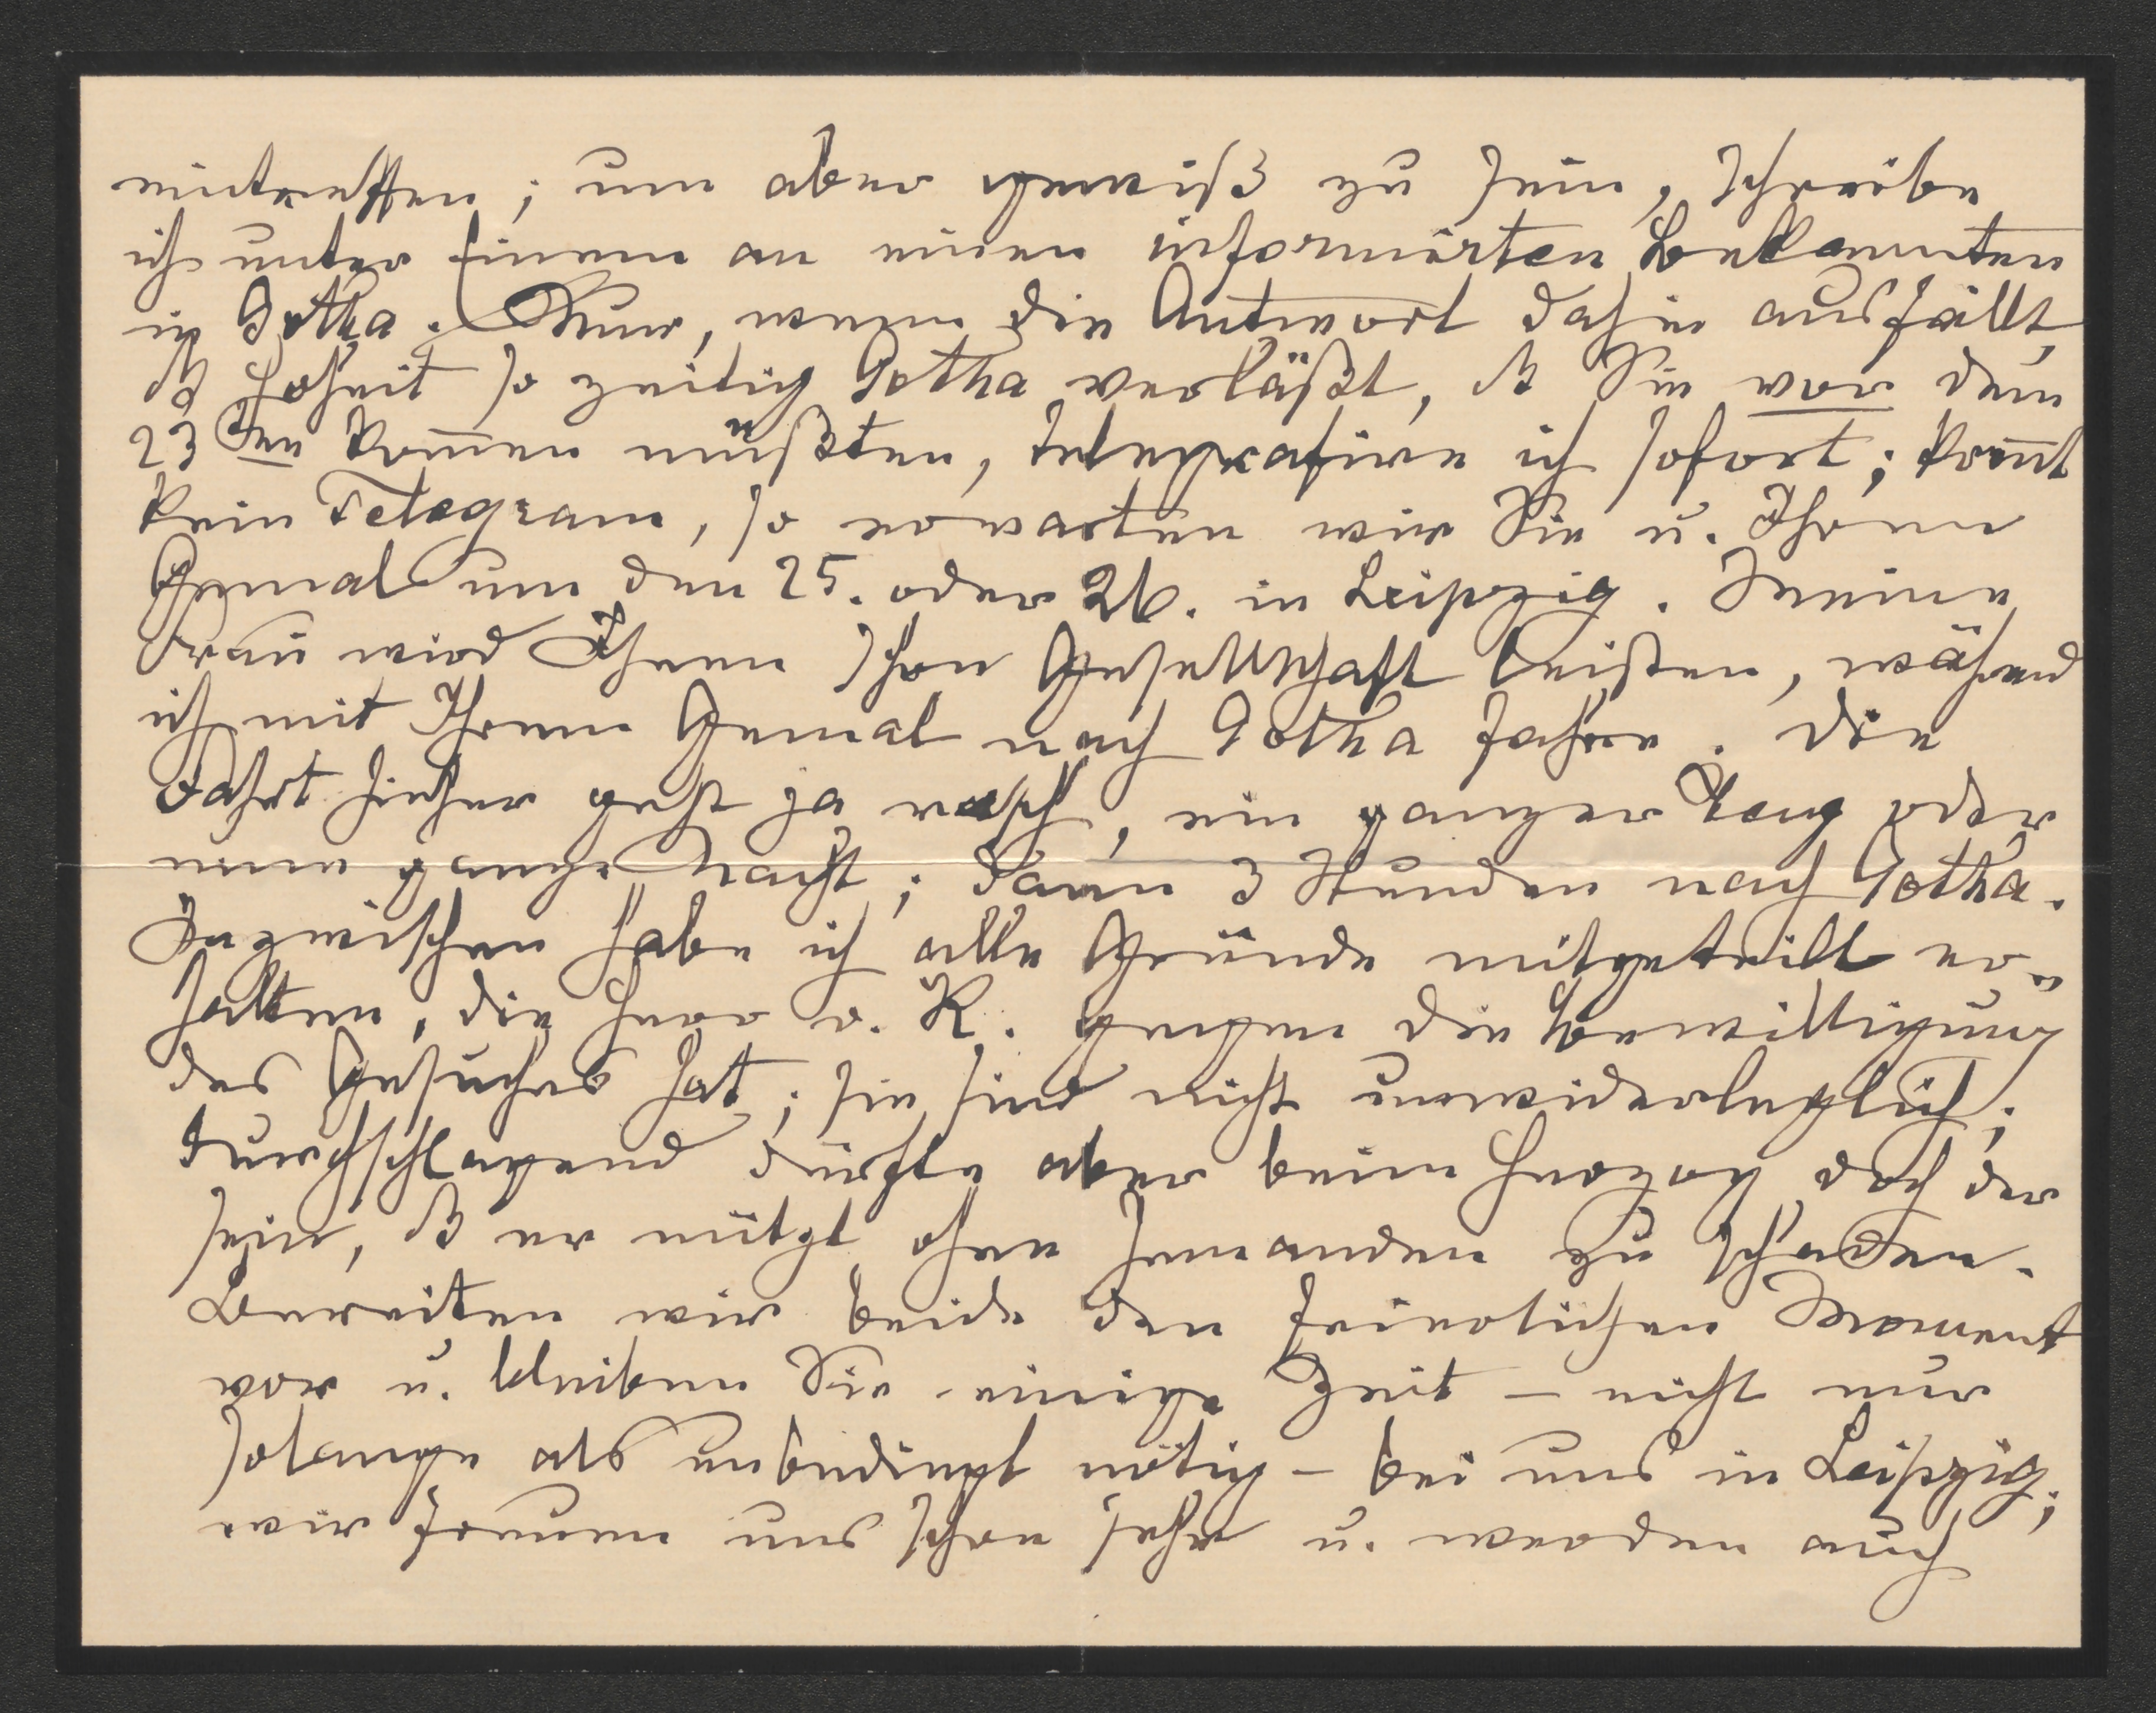 eintreffen; um aber gewiß zu sein, schreibe
ich unter Einem an einen informirten Bekannten
in Gotha. Nur, wenn die Antwort dahin ausfällt,
dß Hoheit so zeitig Gotha verläßt, dß Sie vor dem
23ten kom̄en müßten, telegrafire ich sofort; kom̄t
kein Telegram, so erwarten wir Sie u. Ihren
Gemal um den 25. oder 26. in Leipzig. Meine
Frau wird Ihnen schon Gesellschaft leisten, während
ich mit Ihrem Gemal nach Gotha fahre. Die
Fahrt hieher geht ja rasch, ein ganzer Tag oder
eine ganze Nacht; dann 3 Stunden nach Gotha.
Inzwischen habe ich alle Gründe mitgeteilt er-
halten, die Herr v. K. gegen die Bewilligung
des Gesuches hat; sie sind nicht unwiderleglich;
durchschlagend dürfte aber beim Herzog doch der
sein, dß er nützt ohne Jemanden zu schaden.
Bereiten wir beide den feierlichen Moment
vor u. bleiben Sie einige Zeit – nicht nur
solange als unbedingt nötig – bei uns in Leipzig;
wir freuen uns schon sehr u. werden auch